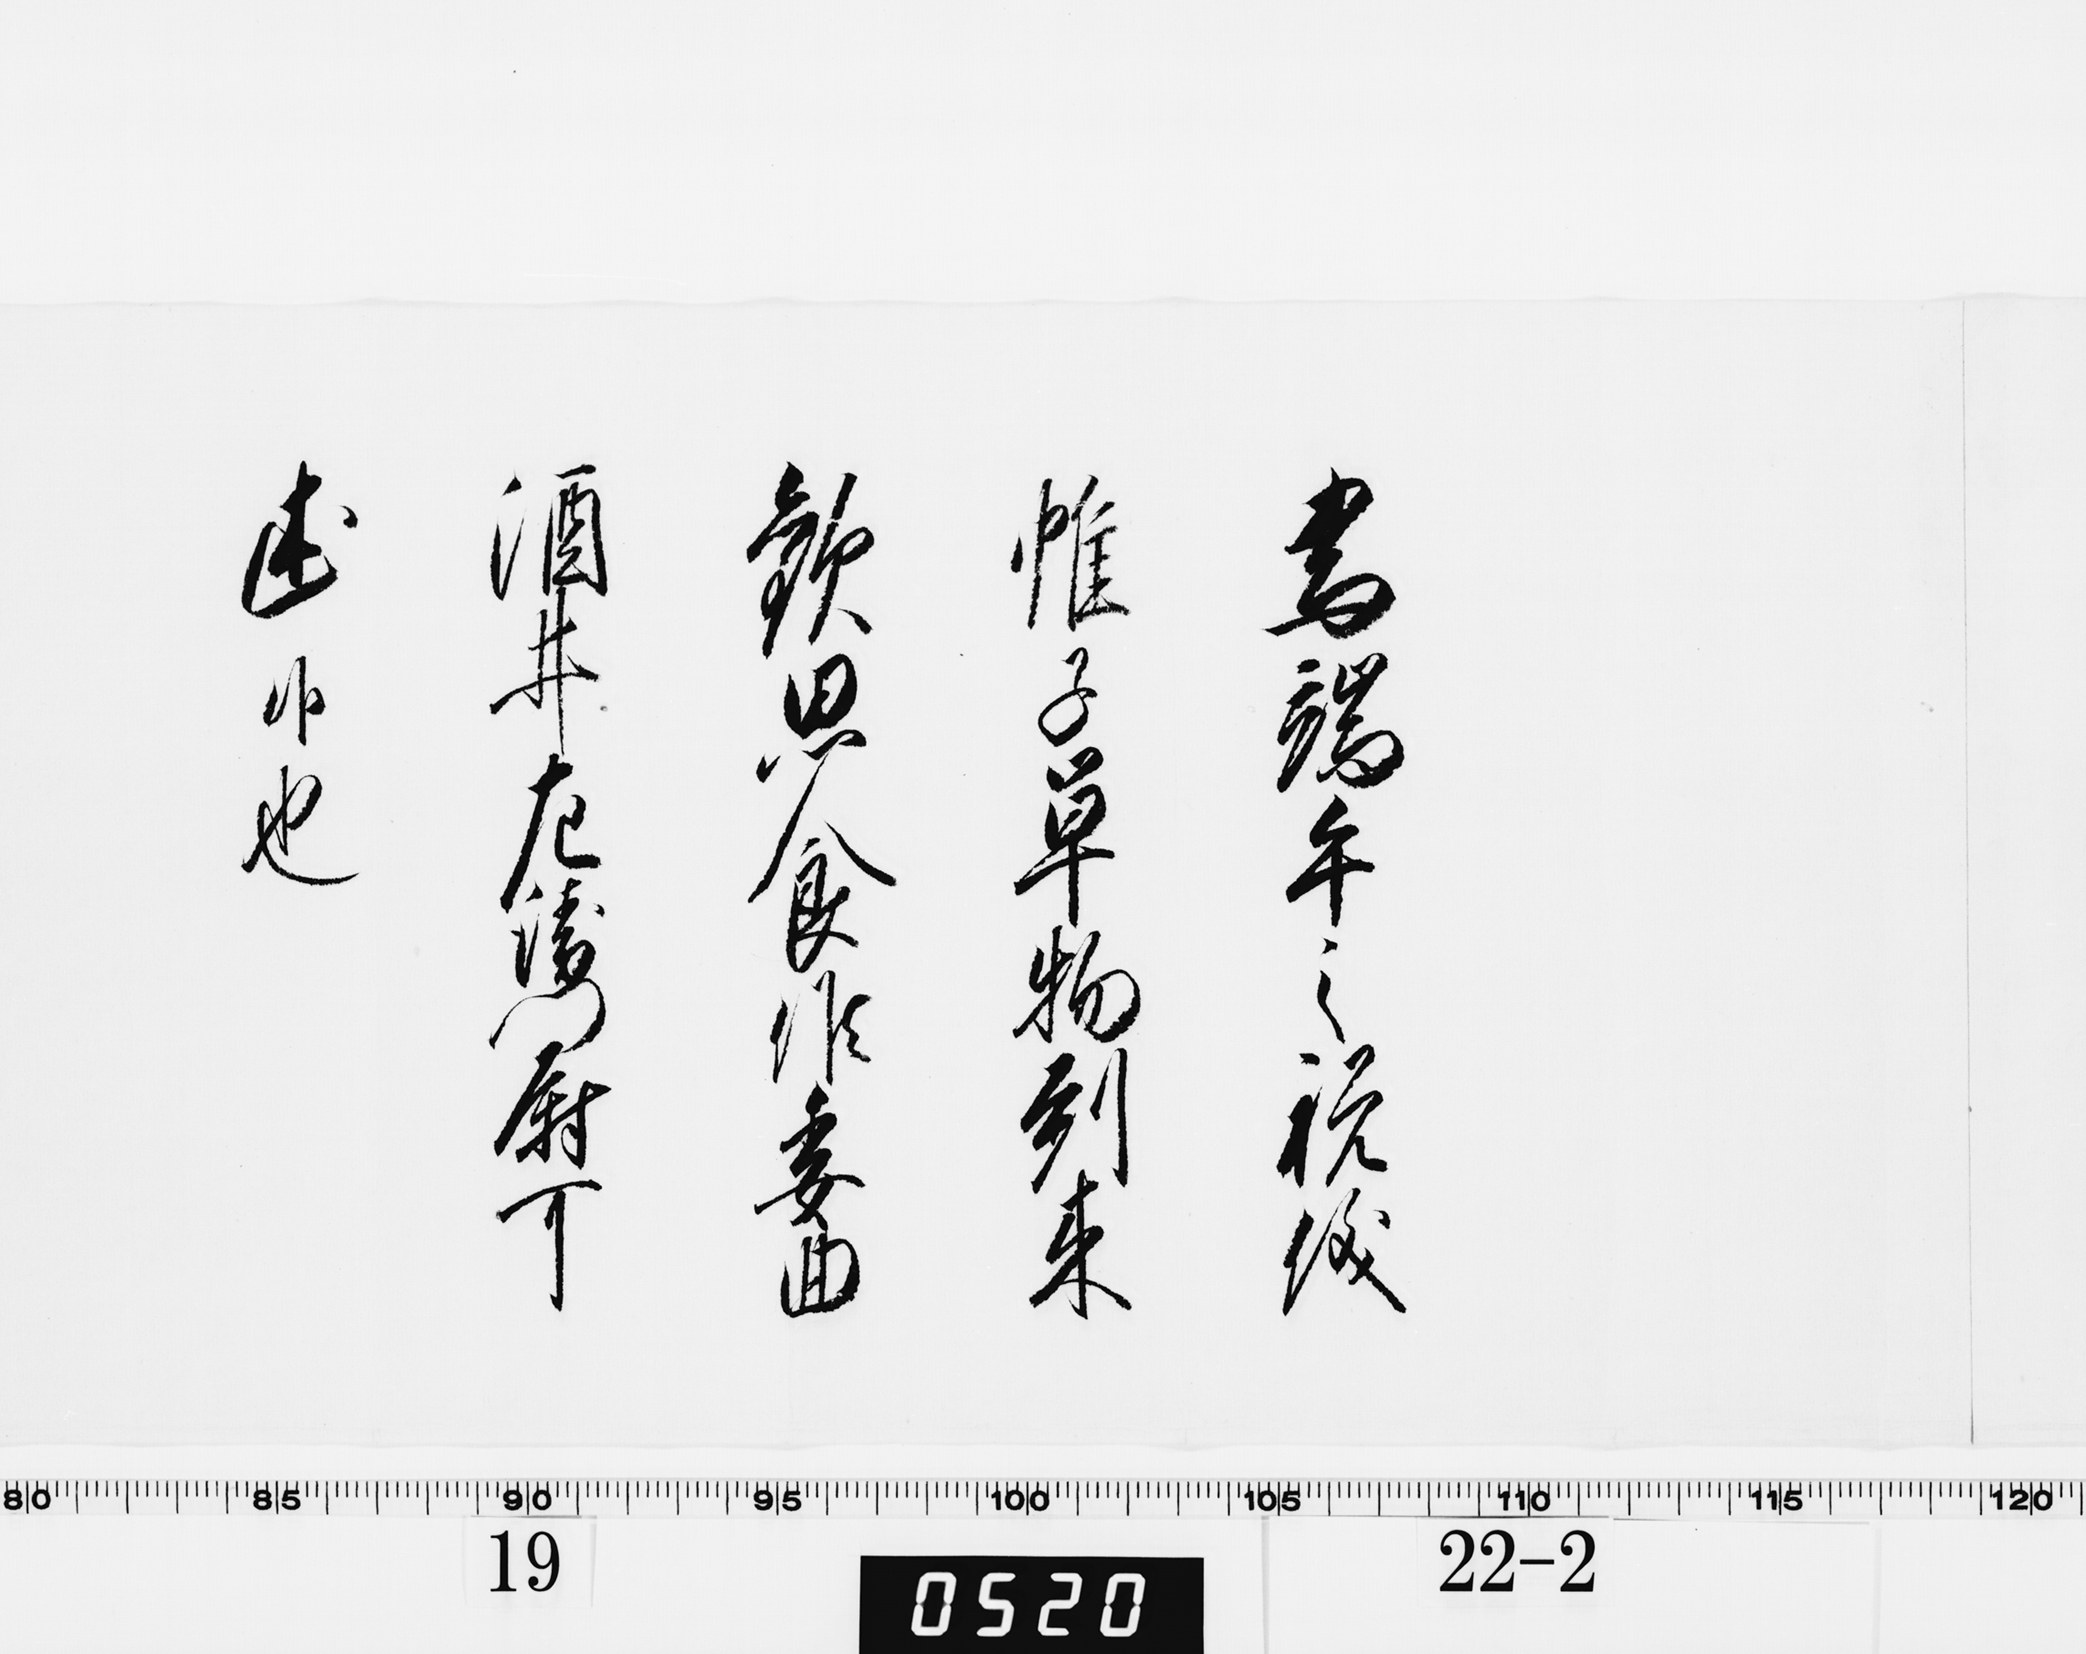 為端午之祝儀
帷子単物到来
歓思食候委曲
酒井左衛門尉可
述候也
80 85 90 95 100 105 110 115 120
19
0520
22-2